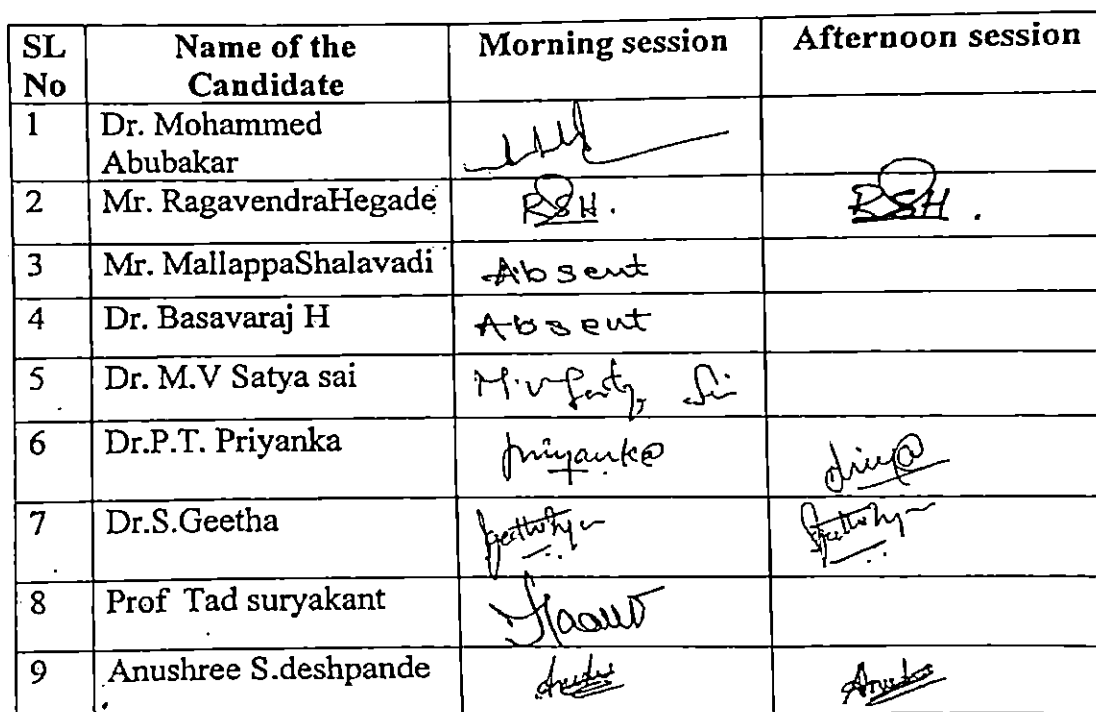 SL No Name of the Candidate Morning session Afternoon session
1 Dr. Mohammed Abubakar
2 Mr. RagavendraHegade RSH. RSH.
3 Mr. MallappaShalavadi Absent
4 Dr. Basavaraj H Absent
5 Dr. M.V Satya sai
6 Dr.P.T. Priyanka Priyanka
7 Dr.S.Geetha
8 Prof Tad suryakant
9 Anushree S.deshpande